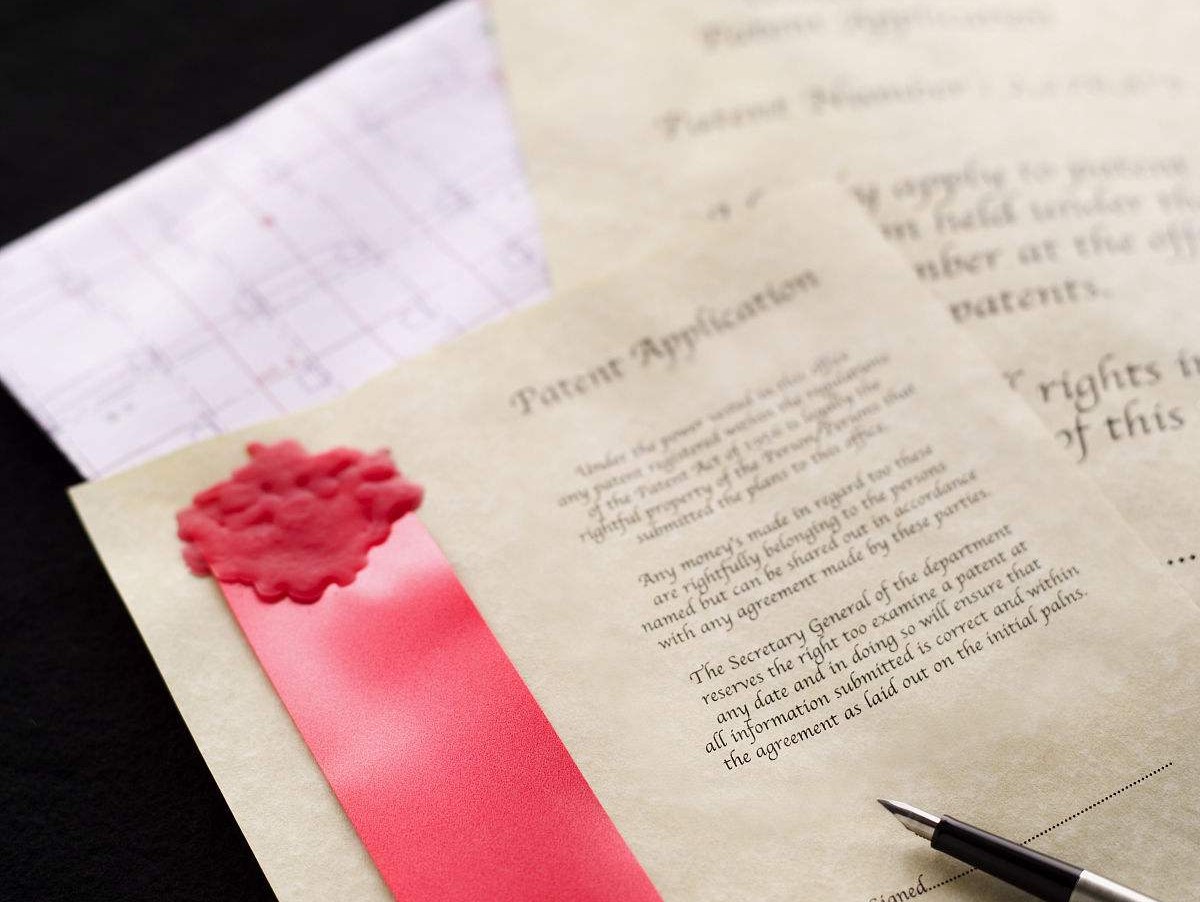 Patent Application
Patent Number
y apply to patent
n held under th
mber at the off
patents.
rights in
of this
Patent Application
Under the power vested in this office
any patent registered within the regulations
of the Patent Act of is legally the
rightful property of the Person/Persons that
submitted the plans to this office.
Any money's made in regard too these
are rightfully belonging to the persons
named but can be shared out in accordance
with any agreement made by these parties.
The Secretary General of the department
reserves the right too examine a patent at
any date and in doing so will ensure that
all information submitted is correct and within
the agreement as laid out on the initial palns.
igned